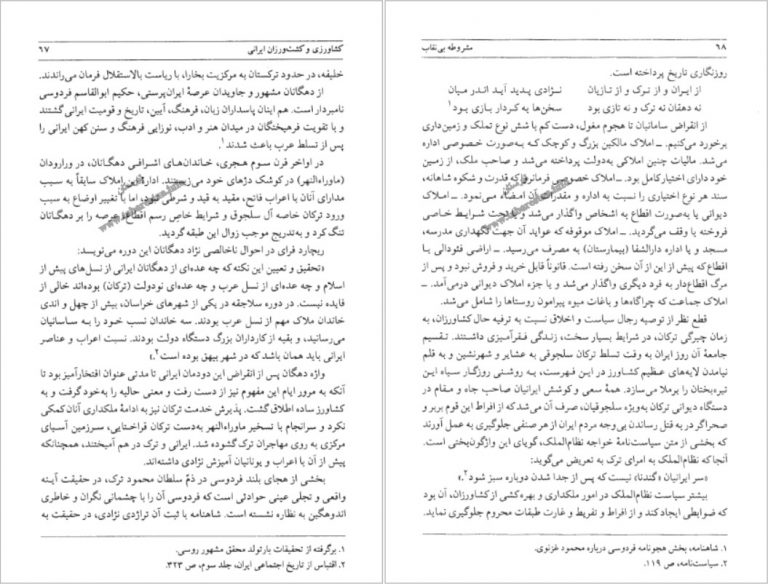 ۶۷
کشاورزی و کشت‌ورزان ایرانی
خلیفه، در حدود ترکستان به مرکزیت بخارا، با ریاست بالاستقلال فرمان می‌راندند.
از دهگانان مشهور و جاویدان عرصهٔ ایران‌پرستی، حکیم ابوالقاسم فردوسی
نامبردار است. هم اینان پاسداران زبان، فرهنگ، آیین، تاریخ و قومیت ایرانی گشتند
و با تقویت فرهیختگان در میدان هنر و ادب، نوزایی فرهنگ و سنن کهن ایرانی را
پس از تسلط عرب باعث شدند.۱
در اواخر قرن سوم هجری، خاندان‌های اشرافی دهگانان، در ورارودان
(ماوراءالنهر) در کوشک دژهای خود می‌زیستند. ادارهٔ این املاک سابقاً به سبب
مدارای آنان با اعراب فاتح، مقید به قید و شرطی نبود، اما با تغییر اوضاع به سبب
ورود ترکان خاصه آل سلجوق و شرایط خاص رسم اقطاع، عرصه را بر دهگانان
تنگ کرد و به‌تدریج موجب زوال این طبقه گردید.
ریچارد فرای در احوال ناخالصی نژاد دهگانان این دوره می‌نویسد:
«تحقیق و تعیین این نکته که چه عده‌ای از دهگانان ایرانی از نسل‌های پیش از
اسلام و چه عده‌ای از نسل عرب و چه عده‌ای نودولت (ترکان) بوده‌اند خالی از
فایده نیست. در دوره سلاجقه در یکی از شهرهای خراسان، بیش از چهل و اندی
خاندان ملاک مهم از نسل عرب بودند. سه خاندان نسب خود را به ساسانیان
می‌رسانید، و بقیه از کارداران بزرگ دستگاه دولت بودند. نسبت اعراب و عناصر
ایرانی باید همان باشد که در شهر بیهق بوده است.»۲
واژه دهگان پس از انقراض این دودمان ایرانی تا مدتی عنوان افتخارآمیز بود تا
آنکه به مرور ایام این مفهوم نیز از دست رفت و معنی حالیه را به‌خود گرفت و به
کشاورز ساده اطلاق گشت. پذیرش خدمت ترکان نیز به ادامهٔ ملکداری آنان کمکی
نکرد و سرانجام با تسخیر ماوراءالنهر به‌دست ترکان قراختایی، سرزمین آسیای
مرکزی به روی مهاجران ترک گشوده شد. ایرانی و ترک در هم آمیختند، همچنانکه
پیش از آن با اعراب و یونانیان آمیزش نژادی داشته‌اند.
بخشی از هجای بلند فردوسی در ذمّ سلطان محمود ترک، در حقیقت آینه
واقعی و تجلی عینی حوادثی است که فردوسی آن را با چشمانی نگران و خاطری
اندوهگین به نظاره نشسته است. شاهنامه با ثبت آن تراژدی نژادی، در حقیقت به
۱. برگرفته از تحقیقات بارتولد محقق مشهور روسی.
۲. اقتباس از تاریخ اجتماعی ایران، جلد سوم، ص ۳۲۳.
۶۸
مشروطه بی‌نقاب
روزنگاری تاریخ پرداخته است.
از ایران و از ترک و از تازیان نژادی پدید آید اندر میان
نه دهقان نه ترک و نه تازی بود سخن‌ها به کردار بازی بود۱
از انقراض سامانیان تا هجوم مغول، دست کم با شش نوع تملک و زمین‌داری
برخورد می‌کنیم. ــ املاک مالکین بزرگ و کوچک که به‌صورت خصوصی اداره
می‌شد. مالیات چنین املاکی به‌دولت پرداخته می‌شد و صاحب ملک، از زمین
خود دارای اختیار کامل بود. ــ املاک خصوصی فرمانرو که قدرت و شکوه شاهانه،
سند هر نوع اختیاری را نسبت به اداره و مقدرات آن امضاء می‌نمود. ــ املاک
دیوانی یا به‌صورت اقطاع به اشخاص واگذار می‌شد و یا تحت شرایط خاصی
فروخته یا وقف می‌گردید. ــ املاک موقوفه که عواید آن جهت نگهداری مدرسه،
مسجد و یا اداره دارالشفا (بیمارستان) به مصرف می‌رسید. ــ اراضی فئودالی یا
اقطاع که پیش از این از آن سخن رفته است. قانوناً قابل خرید و فروش نبود و پس از
مرگ اقطاع‌دار به فرد دیگری واگذار می‌شد و یا جزء املاک دیوانی درمی‌آمد. ــ
املاک جماعت که چراگاه‌ها و باغات میوه پیرامون روستاها را شامل می‌شد.
قطع نظر از توصیه رجال سیاست و اخلاق نسبت به ترفیه حال کشاورزان، به
زمان چیرگی ترکان، در شرایط بسیار سخت، زندگی فقرآمیزی داشتند. تقسیم
جامعهٔ آن روز ایران به وقت تسلط ترکان سلجوقی به عشایر و شهرنشین و به قلم
نیامدن لایه‌های عظیم کشاورز در این فهرست، به روشنی روزگار سیاه این
تیره‌بختان را برملا می‌سازد. همهٔ سعی و کوشش ایرانیان صاحب جاه و مقام در
دستگاه دیوانی ترکان به‌ویژه سلجوقیان، صرف آن می‌شد که از افراط این قوم بربر و
صحراگرد در به قتل رساندن بی‌وجه مردم ایران از هر صنفی جلوگیری به عمل آورند
که بخشی از متن سیاست‌نامهٔ خواجه نظام‌الملک، گویای این واژگون‌بختی است.
آنجا که نظام‌الملک به امرای ترک به تعریض می‌گوید:
«سر ایرانیان «گندنا» نیست که پس از جدا شدن دوباره سبز شود.»۲
بیشتر سیاست نظام‌الملک در امور ملکداری و بهره کشی از کشاورزان، آن بود
که ضوابطی ایجاد کند و از افراط و تفریط و غارت طبقات محروم جلوگیری نماید.
۱. شاهنامه، بخش هجونامه فردوسی درباره محمود غزنوی.
۲. سیاست‌نامه، ص ۱۱۹.